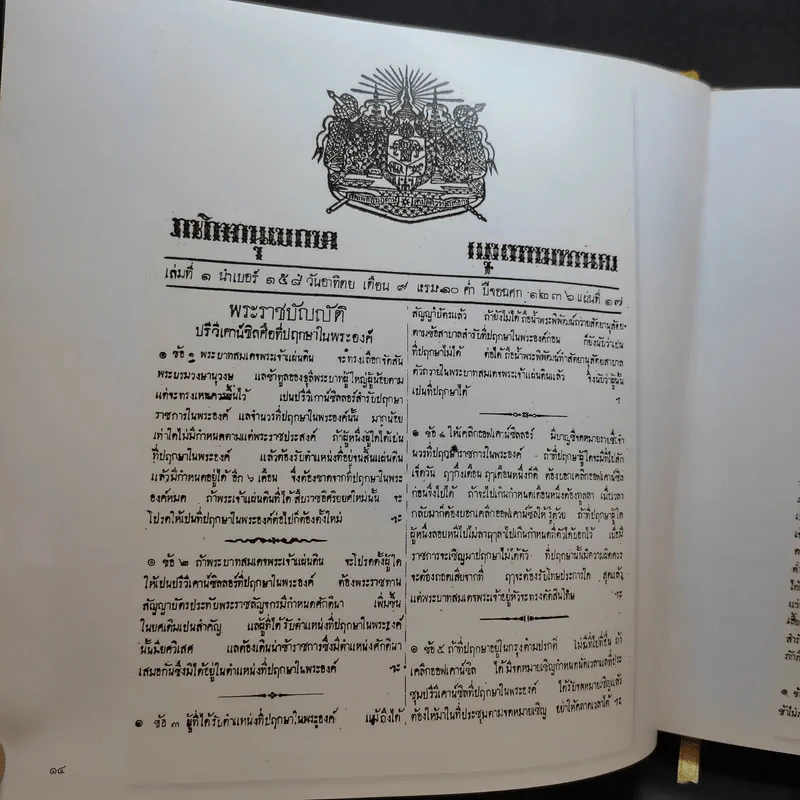 ราชกิจจานุเบกษา
กรุงเทพมหานคร
เล่มที่ ๑ นำเบอร์ ๑๕๘ วันอาทิตย เดือน ๙ แรม ๑๐ ค่ำ ปีจอฉศก ๑๒๓๖ แผ่นที่ ๑๗
พระราชบัญญัติ
ปรีวีเคาน์ซิลคือที่ปฤกษาในพระองค์
๑ ข้อ ๑ พระบาทสมเดจพระเจ้าแผ่นดิน จะทรงเลือกจัดสัน
พระบรมวงษานุวงษ แลข้าทูลอองธุลีพระบาทผู้ใหญ่ผู้น้อยตาม
แต่จะทรงเหนควรตั้งไว้ เปนปรีวีเคาน์ซิลลอร์สำรับปฤกษา
ราชการในพระองค์ แลจำนวรที่ปฤกษาในพระองค์นั้น มากน้อย
เท่าใดไม่มีกำหนดตามแต่พระราชประสงค์ ถ้าผู้หนึ่งผู้ใดได้เปน
ที่ปฤกษาในพระองค์ แล้วต้องรับตำแหน่งที่อยู่จนสิ้นแผ่นดิน
แล้วมีกำหนดอยู่ได้ อีก ๖ เดือน จึ่งต้องขาดจากที่ปฤกษาในพระ
องค์หมด ถ้าพระเจ้าแผ่นดินที่ได้สืบราชอิศริยยศใหม่นั้น จะ
โปรดให้เปนที่ปฤกษาในพระองค์ต่อไปก็ต้องตั้งใหม่ ฯะ
๑ ข้อ ๒ ถ้าพระบาทสมเดจพระเจ้าแผ่นดิน จะโปรดตั้งผู้ใด
ให้เปนปรีวีเคาน์ซิลลอร์ที่ปฤกษาในพระองค์ ต้องพระราชทาน
สัญญาบัตรประทับพระราชลัญจกรมีกำหนดศักดินา เพิ่มขึ้น
ในยศเดิมเปนสำคัญ แลผู้ที่ได้รับตำแหน่งที่ปฤกษาในพระองค์
นั้นมียศวิเสศ แลต้องเดินน่าข้าราชการซึ่งมีตำแหน่งศักดินา
เสมอกันซึ่งมิได้อยู่ในตำแหน่งที่ปฤกษาในพระองค์ ฯะ
๑ ข้อ ๓ ผู้ที่ได้รับตำแหน่งที่ปฤกษาในพระองค์ แม้ถึงได้
สัญญาบัตรแล้ว ถ้ายังไม่ได้ถือน้ำพระพิพัฒน์ถวายสัตยานุสัตย
ตามข้อสาบาลสำรับที่ปฤกษาในพระองค์ก่อน ก็ยังนับว่าเปน
ที่ปฤกษาไม่ได้ ต่อได้ถือน้ำพระพิพัฒน์ทำสัตยานุสัตยสาบาล
ตัวถวายในพระบาทสมเดจพระเจ้าแผ่นดินแล้ว จึ่งนับว่าผู้นั้น
เปนที่ปฤกษาได้ ฯ
๑ ข้อ ๔ ให้เคลิกออฟเคาน์ซิลลอร์ มีบาญชีจดหมายรายชื่อจำ
นวรที่ปฤกษาราชการในพระองค์ ถ้าที่ปฤกษาผู้ใดจะมีที่ไปสัก
เจ็ดวัน ฤๅกึ่งเดือน ฤๅเดือนหนึ่งก็ดี ต้องบอกเคลิกออฟเคาน์ซิล
ก่อนจึ่งไปได้ ถ้าจะไปเกินกำหนดเดือนหนึ่งต้องทูลลา เมื่อเวลา
กลับมาก็ต้องบอกเคลิกออฟเคาน์ซิลให้รู้ด้วย ถ้าที่ปฤกษาผู้ใด
ผู้หนึ่งลอบหนีไปไม่ลาฤๅลาไปเกินกำหนดที่ตัวได้บอกไว้ เมื่อมี
ราชการจะเชิญมาปฤกษาไม่ได้ตัว ที่ปฤกษานั้นมีความผิดควร
จะต้องถอดเสียจากที่ ฤๅจะต้องรับโทษประการใด สุดแล้ว
แต่พระบาทสมเดจพระเจ้าอยู่หัวจะทรงตัดสินโทษ ฯะ
๑ ข้อ ๕ ถ้าที่ปฤกษาอยู่ในกรุงตามปรกติ ไม่มีที่ไปที่อื่น ถ้า
เคลิกออฟเคาน์ซิล ได้มีจดหมายเชิญกำหนดนัดเวลาแลที่ประ
ชุมปรีวีเคาน์ซิลที่ปฤกษาในพระองค์ ได้รับจดหมายเชิญแล้ว
ต้องให้มาในที่ประชุมตามจดหมายเชิญ อย่าให้คลาดเวลาได้ ฯะ
๑๔